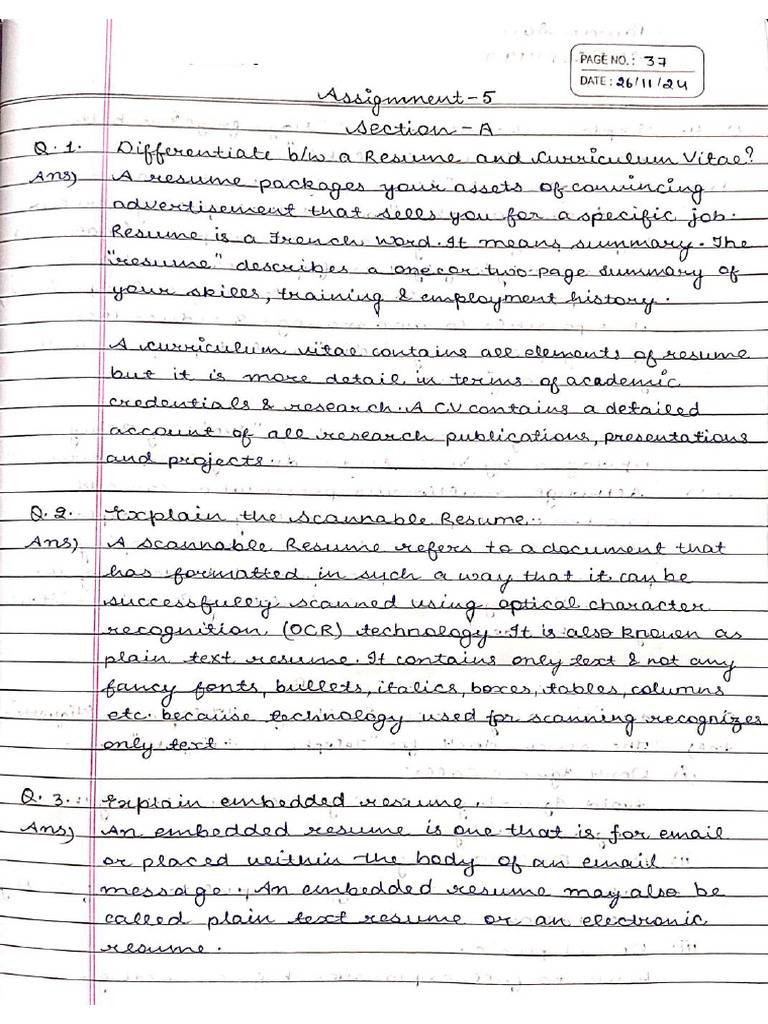 PAGE NO.: 37
DATE: 26/11/24
Assignment-5
Section-A
Q.1. Differentiate b/w a Resume and Curriculum Vitae?
Ans) A resume packages your assets of convincing
advertisement that sells you for a specific job.
Resume is a French word. It means summary. The
"resume" describes a one or two-page summary of
your skills, training & employment history.
A curriculum vitae contains all elements of resume
but it is more detail in terms of academic
credentials & research. A CV contains a detailed
account of all research publications, presentations
and projects.
Q.2. Explain the Scannable Resume.
Ans) A scannable Resume refers to a document that
has formatted in such a way that it can be
successfully scanned using optical character
recognition (OCR) technology. It is also known as
plain text resume. It contains only text & not any
fancy fonts, bullets, italics, boxes, tables, columns
etc. because technology used for scanning recognizes
only text.
Q.3. Explain embedded resume.
Ans) An embedded resume is one that is for email
or placed within the body of an email
message. An embedded resume may also be
called plain text resume or an electronic
resume.